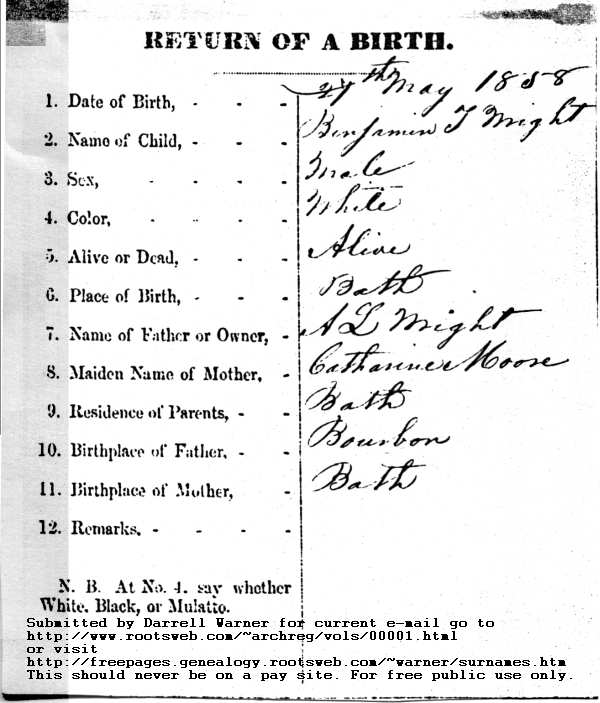 RETURN OF A BIRTH.
1. Date of Birth, - - - 27th May 1858
2. Name of Child, - - - Benjamin T Wright
3. Sex, - - - - Male
4. Color, - - - - White
5. Alive or Dead, - - - Alive
6. Place of Birth, - - - Bath
7. Name of Father or Owner, - A L Wright
8. Maiden Name of Mother, - Catharine Moore
9. Residence of Parents, - - Bath
10. Birthplace of Father, - - Bourbon
11. Birthplace of Mother, - Bath
12. Remarks. - - - -
N. B. At No. 4. say whether
White, Black, or Mulatto.
Submitted by Darrell Warner for current e-mail go to
http://www.rootsweb.com/~archreg/vols/00001.html
or visit
http://freepages.genealogy.rootsweb.com/~warner/surnames.htm
This should never be on a pay site. For free public use only.